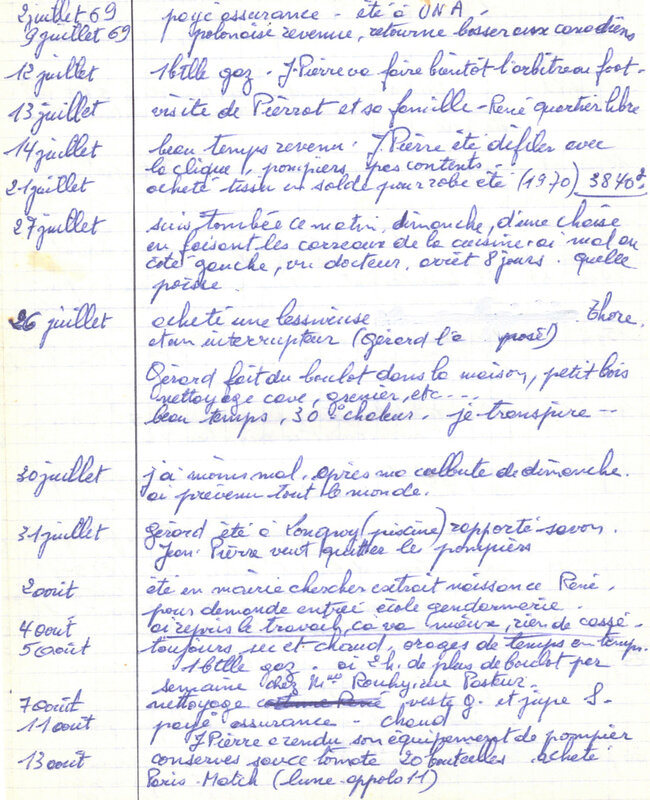 2 juillet 69 payé assurance - été à UNA -
9 juillet 69 polonaise revenue, retourne bosser aux canadiens
12 juillet 1 btlle gaz - J.Pierre va faire bientôt l'arbitre au foot -
13 juillet visite de Pierrot et sa famille - René quartier libre
14 juillet beau temps revenu. J.Pierre été défiler avec
la clique, pompiers, pas contents -
21 juillet acheté tissu en solde pour robe été (1970) 3840 F
27 juillet suis tombée ce matin, dimanche, d'une chaise
en faisant les carreaux de la cuisine. ai mal au
côté gauche, vu docteur, arrêt 8 jours. quelle
poisse
26 juillet acheté une lessiveuse Thore.
et un interrupteur (Gérard l'a posé)
Gérard fait du boulot dans la maison, petit bois
nettoyage cave, grenier, etc...
beau temps, 30° chaleur. je transpire --
30 juillet j'ai moins mal, après ma culbute de dimanche.
ai prévenu tout le monde.
31 juillet Gérard été à Longwy (piscine) rapporté savon.
Jean-Pierre veut quitter le pompiers
2 août été en mairie chercher extrait naissance René,
pour demande entrée école gendarmerie.
4 août ai repris le travail, ça va mieux, rien de cassé -
5 août toujours sec et chaud, orages de temps en temps.
1 btlle gaz. ai 2 h. de plus de boulot par
semaine chez Mme rue Pasteur.
7 août nettoyage costume René veste g. et jupe S.
11 août payé assurance - chaud
J Pierre a rendu son équipement de pompier
13 août conserves sauce tomate 20 bouteilles. acheté
Paris-Match (lune-appolo 11)